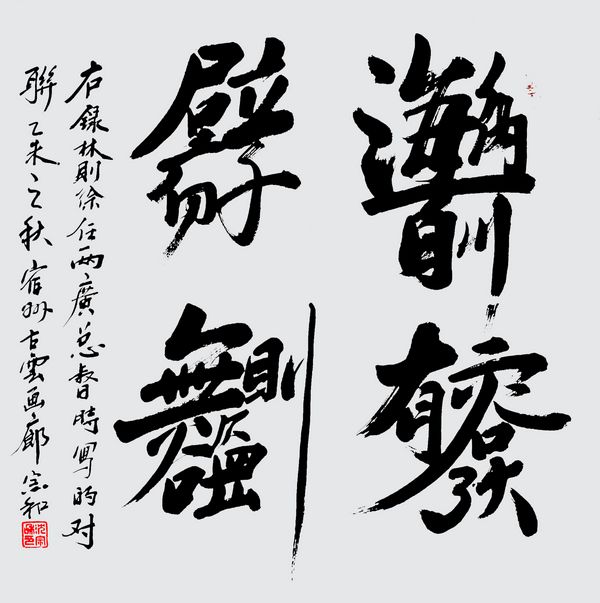 海納百川
有容乃大
壁立千仞
無欲則剛
右録林則徐任两廣总督時写的对
聯乙未之秋宿州古雲画廊宗和